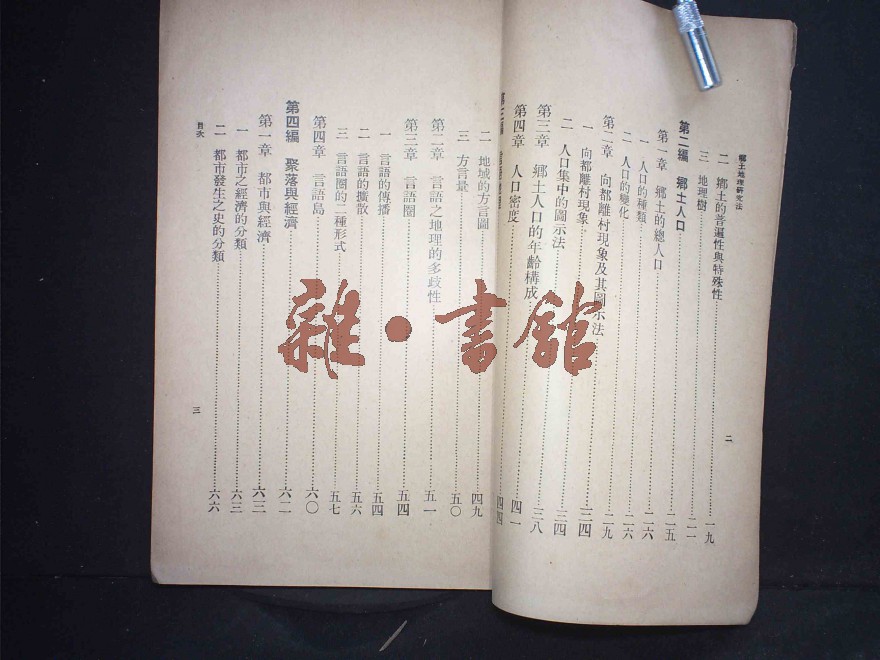 鄉土地理研究法
二 鄉土的普遍性與特殊性……一九
三 地理樹……二一
第二編 鄉土人口……二五
第一章 鄉土的總人口……二五
一 人口的種類……二六
二 人口的變化……二六
第二章 向都離村現象及其圖示法……二九
一 向都離村現象……三四
二 人口集中的圖示法……三四
第三章 鄉土人口的年齡構成……三八
第四章 人口密度……四一
二
二 地域的方言圖……四九
三 方言量……五〇
第二章 言語之地理的多歧性……五一
第三章 言語圈……五四
一 言語的傳播……五四
二 言語的擴散……五六
三 言語圈的二種形式……五七
第四章 言語島……六〇
第四編 聚落與經濟……六二
第一章 都市與經濟……六三
一 都市之經濟的分類……六三
二 都市發生之史的分類……六六
目次
三
雜·書館